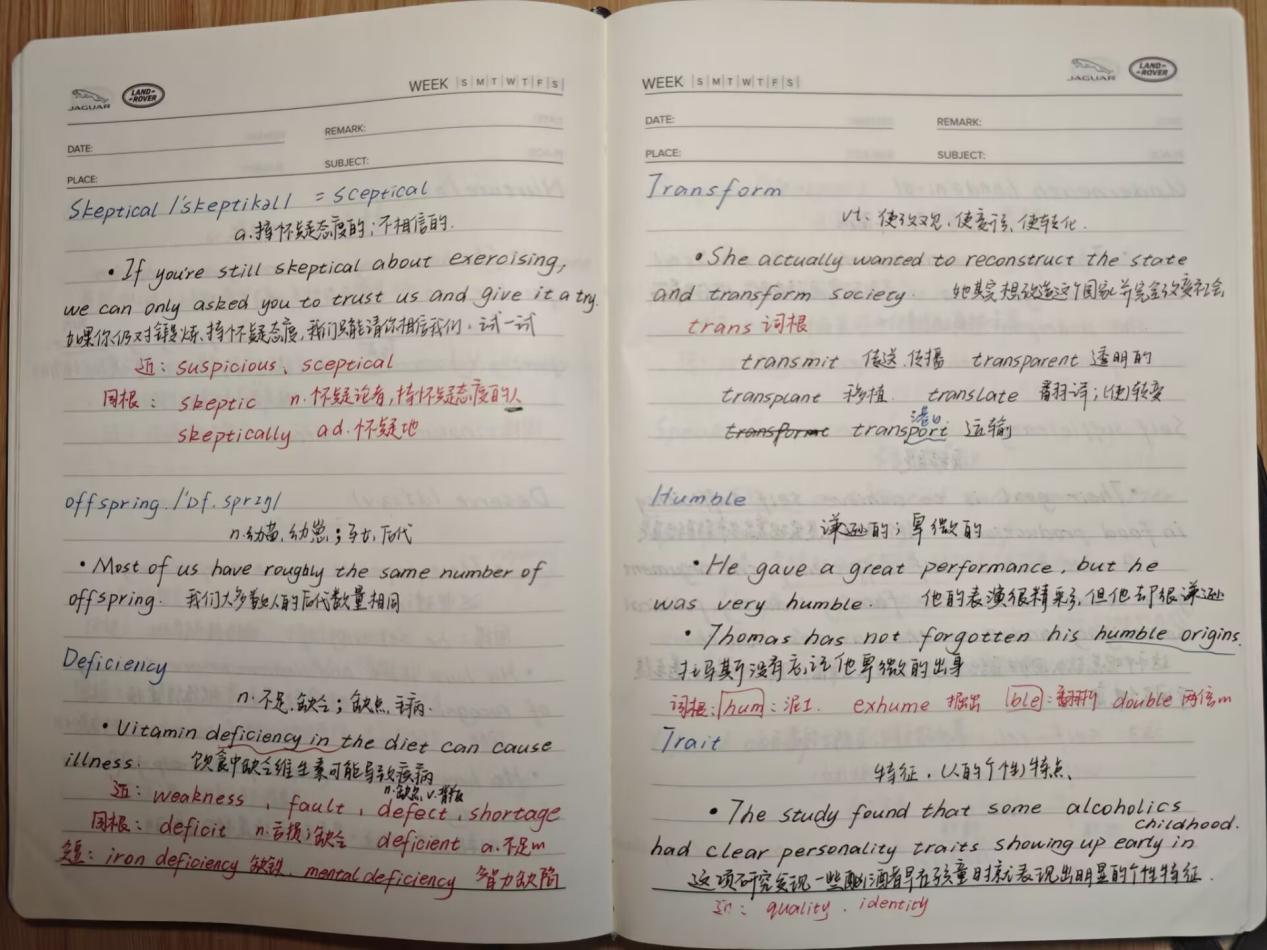 WEEK S M T W T F S
JAGUAR LAND-ROVER
DATE: REMARK:
PLACE: SUBJECT:
Skeptical /'skeptikəl/ = sceptical
a.持怀疑态度的;不相信的.
• If you're still skeptical about exercising,
we can only asked you to trust us and give it a try.
如果你仍对锻炼、持怀疑态度,我们只能请你相信我们,试一试
近: suspicious、sceptical
同根: skeptic n.怀疑论者,持怀疑态度的人
skeptically ad.怀疑地
offspring /'ɒf.sprɪŋ/
n.幼苗,幼崽;子女,后代
• Most of us have roughly the same number of
offspring. 我们大多数人的后代数量相同
Deficiency
n.不足,缺乏;缺点,毛病.
• Vitamin deficiency in the diet can cause
illness. 饮食中缺乏维生素可能导致疾病
n.缺点 v.背叛
近: weakness, fault, defect, shortage
同根: deficit n.亏损;缺乏 deficient a.不足的
短: iron deficiency 缺铁、mental deficiency 智力缺陷
WEEK S M T W T F S
JAGUAR LAND-ROVER
DATE: REMARK:
PLACE: SUBJECT:
Transform
vt. 使改观,使变形,使转化.
• She actually wanted to reconstruct the state
and transform society. 她其实想改造这个国家并完全改变社会
trans 词根
transmit 传送,传播 transparent 透明的
transplant 移植 translate 翻译;(使)转变
港口
transport 运输
Humble
谦逊的;卑微的
• He gave a great performance, but he
was very humble. 他的表演很精彩,但他却很谦逊
• Thomas has not forgotten his humble origins.
托马斯没有忘记他卑微的出身
词根: hum:泥土 exhume 掘出 ble: double 两倍的
Trait
特征,(人的个性)特点、
• The study found that some alcoholics
childhood.
had clear personality traits showing up early in
这项研究发现一些酗酒者早在孩童时就表现出明显的个性特征.
近: quality、identity